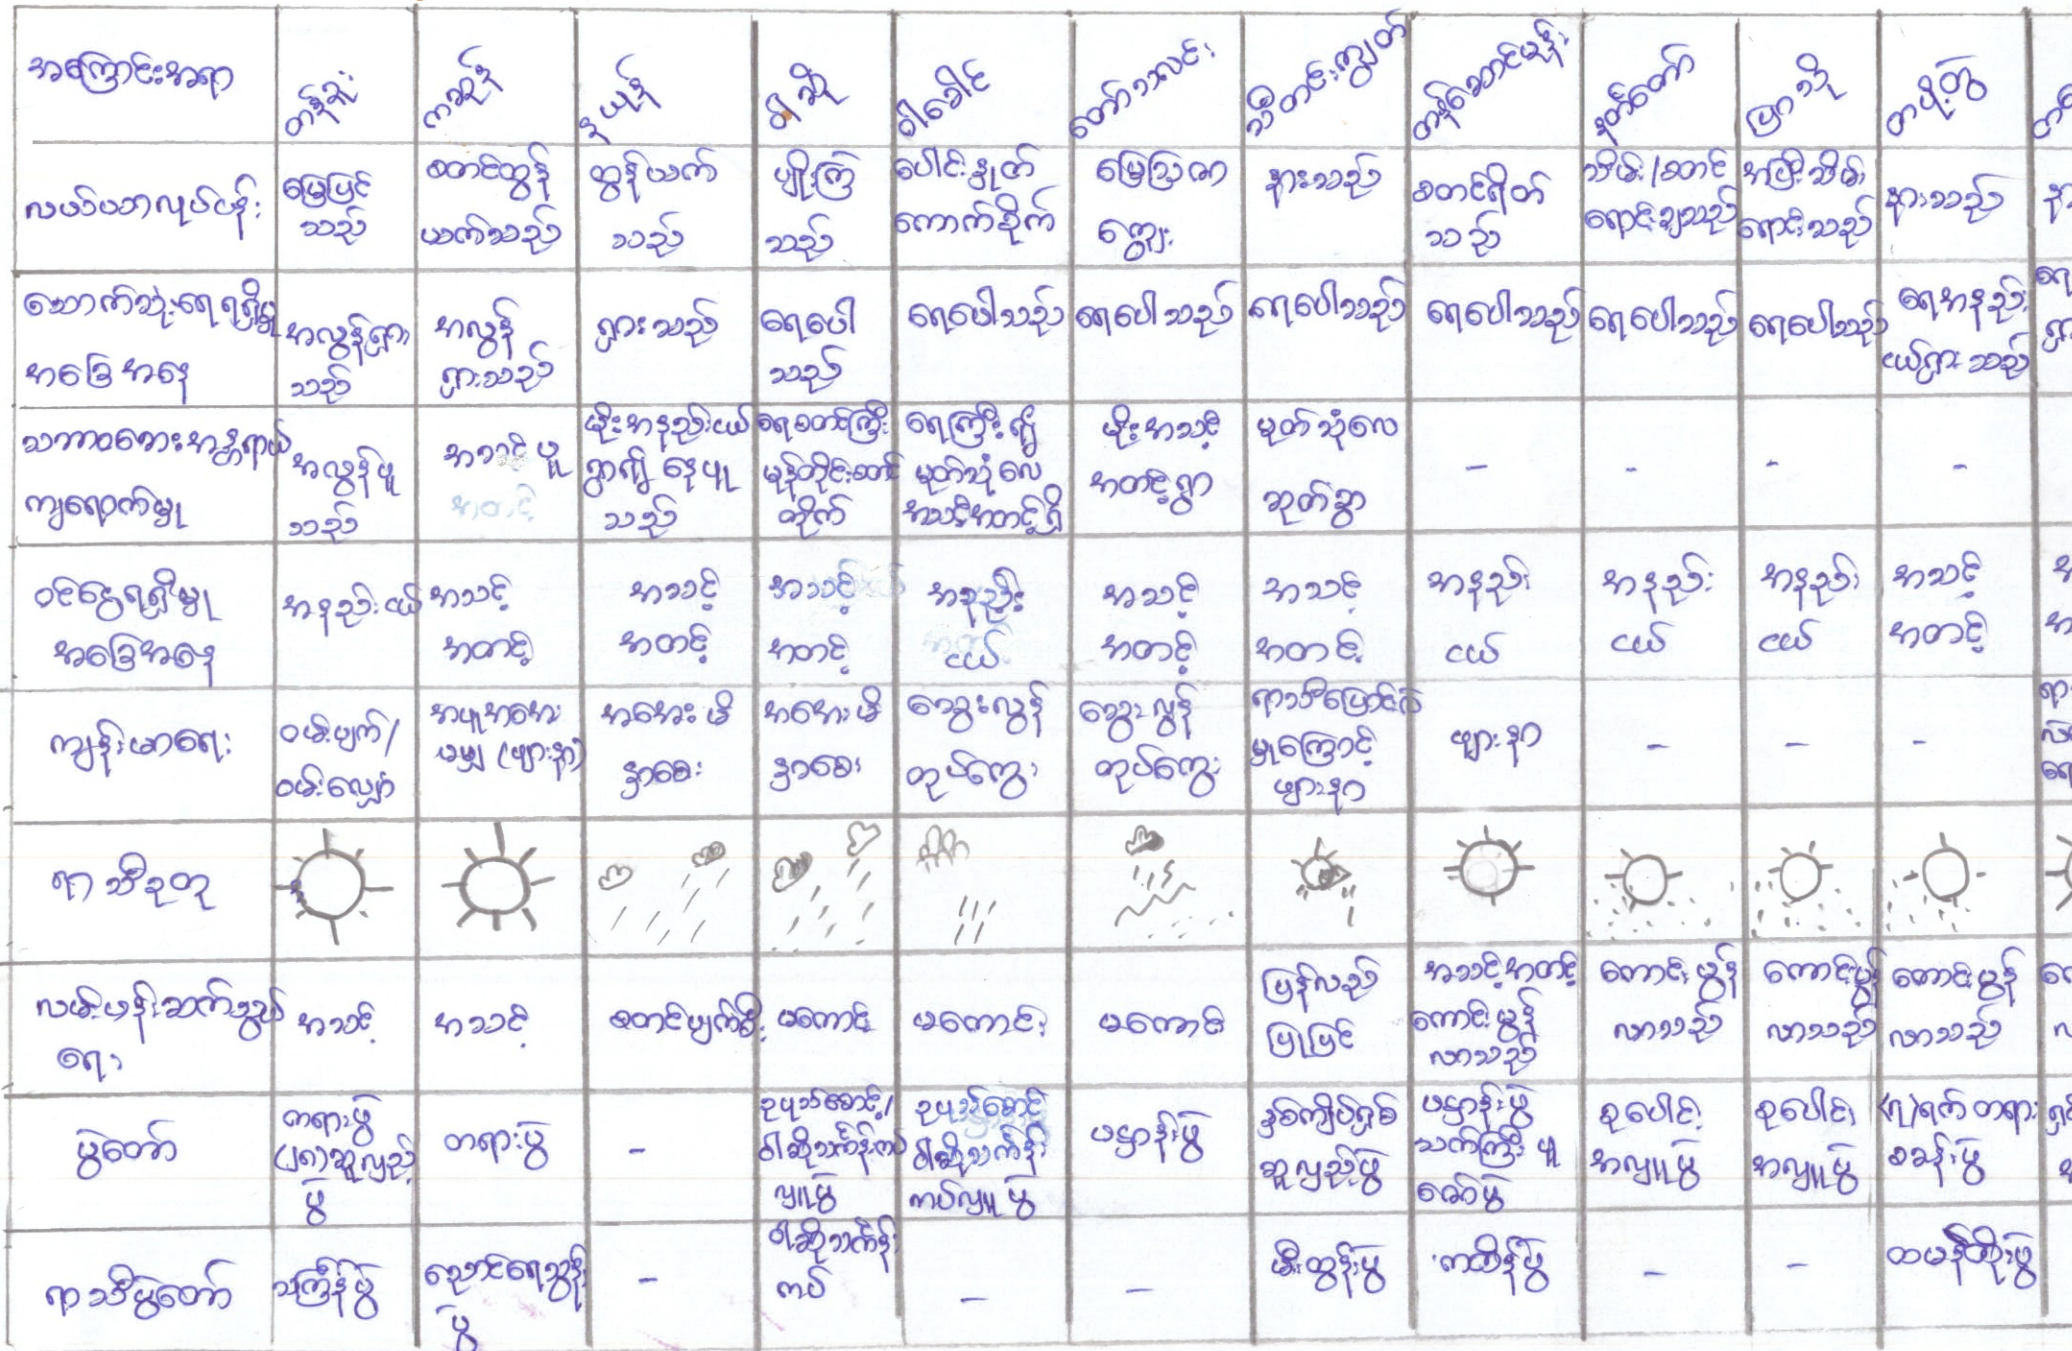 အကြောင်းအရာ
တန်ခူး
ကဆုန်
နယုန်
ဝါဆို
ဝါခေါင်
တော်သလင်း
သီတင်းကျွတ်
တန်ဆောင်မုန်း
နတ်တော်
ပြာသို
တပို့တွဲ
လယ်ယာလုပ်ငန်း
မြေပြင်
သည်
စတင်ထွန်
ယက်သည်
ထွန်ယက်
သည်
ပျိုးကြဲ
သည်
ပေါင်းနှုတ်
ကောက်စိုက်
မြေသြဇာ
ကျွေး
နားသည်
စတင်ရိတ်
သည်
သိမ်း/စတင်
ရောင်းချသည်
အပြီးသိမ်း
ရောင်းသည်
နားသည်
သောက်သုံးရေရရှိမှု
အခြေအနေ
အလွန်ရှား
သည်
အလွန်
ရှားသည်
ရှားသည်
ရေပေါ
သည်
ရေပေါသည်
ရေပေါသည်
ရေပေါသည်
ရေပေါသည်
ရေပေါသည်
ရေပေါသည်
ရေအနည်း
ငယ်ရှားသည်
သဘာဝဘေးအန္တရာယ်
ကျရောက်မှု
အလွန်ပူ
သည်
အသင့်ပူ
အတင့်
မိုးအနည်းငယ်
ရွာ၍ နေပူ
သည်
ရေစတင်ကြီး
မုန်တိုင်းစတင်
တိုက်
ရေကြီး၍
မုတ်သုံလေ
အသင့်အတင့်ရှိ
မိုးအသင့်
အတင့်ရွာ
မုတ်သုံလေ
ဆုတ်ခွာ
-
-
-
-
ဝင်ငွေရရှိမှု
အခြေအနေ
အနည်းငယ်
အသင့်
အတင့်
အသင့်
အတင့်
အသင့်
အတင့်
အနည်း
ငယ်
အသင့်
အတင့်
အသင့်
အတင့်
အနည်း
ငယ်
အနည်း
ငယ်
အနည်း
ငယ်
အသင့်
အတင့်
ကျန်းမာရေး
ဝမ်းပျက်/
ဝမ်းလျှော
အပူအအေး
မမျှ (ဖျားနာ)
အအေးမိ
နှာစေး
အအေးမိ
နှာစေး
သွေးလွန်
တုပ်ကွေး
သွေးလွန်
တုပ်ကွေး
ရာသီပြောင်းလဲ
မှုကြောင့်
ဖျားနာ
ဖျားနာ
-
-
-
ရာသီဥတု
လမ်းပန်းဆက်သွယ်
ရေး
အသင့်
အသင့်
စတင်ပျက်စီး
မကောင်း
မကောင်း
မကောင်း
ပြန်လည်
ပြုပြင်
အသင့်အတင့်
ကောင်းမွန်
လာသည်
ကောင်းမွန်
လာသည်
ကောင်းမွန်
လာသည်
ကောင်းမွန်
လာသည်
ပွဲတော်
တရားပွဲ
ဆွမ်းလှည့်
ပွဲ
တရားပွဲ
-
ဥပုသ်စောင့်/
ဝါဆိုသင်္ကန်းကပ်
လှူပွဲ
ဥပုသ်စောင့်
ဝါဆိုသင်္ကန်း
ကပ်လှူပွဲ
ပဋ္ဌာန်းပွဲ
နှစ်ကျိပ်ရှစ်
ဆူလှည့်ပွဲ
ပဋ္ဌာန်းပွဲ
သက်ကြီးပူ
ဇော်ပွဲ
စုပေါင်း
အလှူပွဲ
စုပေါင်း
အလှူပွဲ
(၇)ရက် တရား
စခန်းပွဲ
ရာသီပွဲတော်
သင်္ကြန်ပွဲ
ညောင်ရေသွန်း
ပွဲ
-
ဝါဆိုသင်္ကန်း
ကပ်
-
-
မီးထွန်းပွဲ
ကထိန်ပွဲ
-
-
ထမနဲထိုးပွဲ